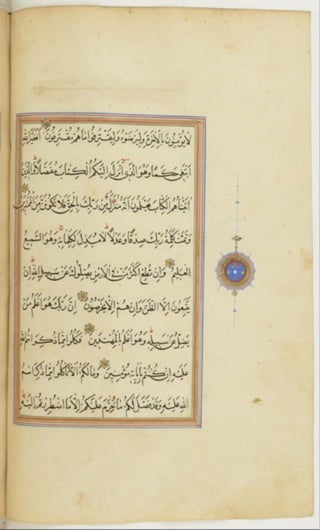 لا يؤمنون بالاخرة وليرضوه وليقترفوا ما هم مقترفون افغير الله
ابتغى حكما وهو الذى انزل اليكم الكتاب مفصلا والذين
اتيناهم الكتاب يعلمون انه منزل من ربك بالحق فلا تكونن من الممترين
وتمت كلمة ربك صدقا وعدلا لا مبدل لكلماته وهو السميع
العليم وان تطع اكثر من فى الارض يضلوك عن سبيل الله ان
يتبعون الا الظن وان هم الا يخرصون ان ربك هو اعلم من
يضل عن سبيله وهو اعلم بالمهتدين فكلوا مما ذكر اسم الله
عليه ان كنتم باياته مؤمنين وما لكم الا تاكلوا مما ذكر اسم
الله عليه وقد فصل لكم ما حرم عليكم الا ما اضطررتم اليه